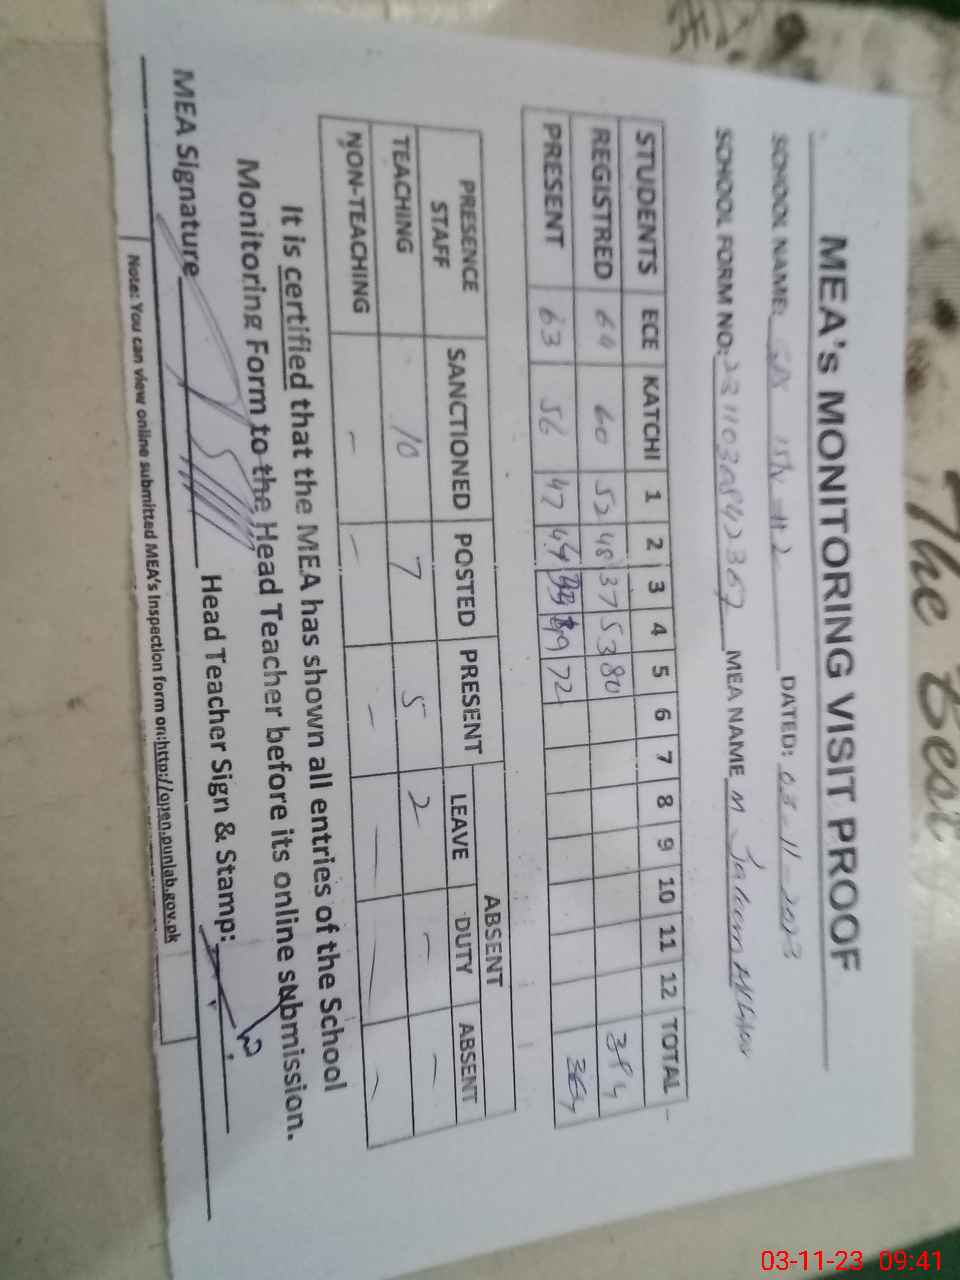 The Best
MEA's MONITORING VISIT PROOF
SCHOOL NAME: DATED: 03-11-2023
SCHOOL FORM NO: MEA NAME M
STUDENTS ECE KATCHI 1 2 3 4 5 6 7 8 9 10 11 12 TOTAL
REGISTRED 64 60 52 48 37 53 80 394
PRESENT 63 56 47 72 364
PRESENCE STAFF SANCTIONED POSTED PRESENT ABSENT
LEAVE DUTY ABSENT
TEACHING 10 7 5 2 - -
NON-TEACHING - - - - - -
It is certified that the MEA has shown all entries of the School
Monitoring Form to the Head Teacher before its online submission.
MEA Signature Head Teacher Sign & Stamp:
Note: You can view online submitted MEA's Inspection form on:http://open.punjab.gov.pk
03-11-23 09:41